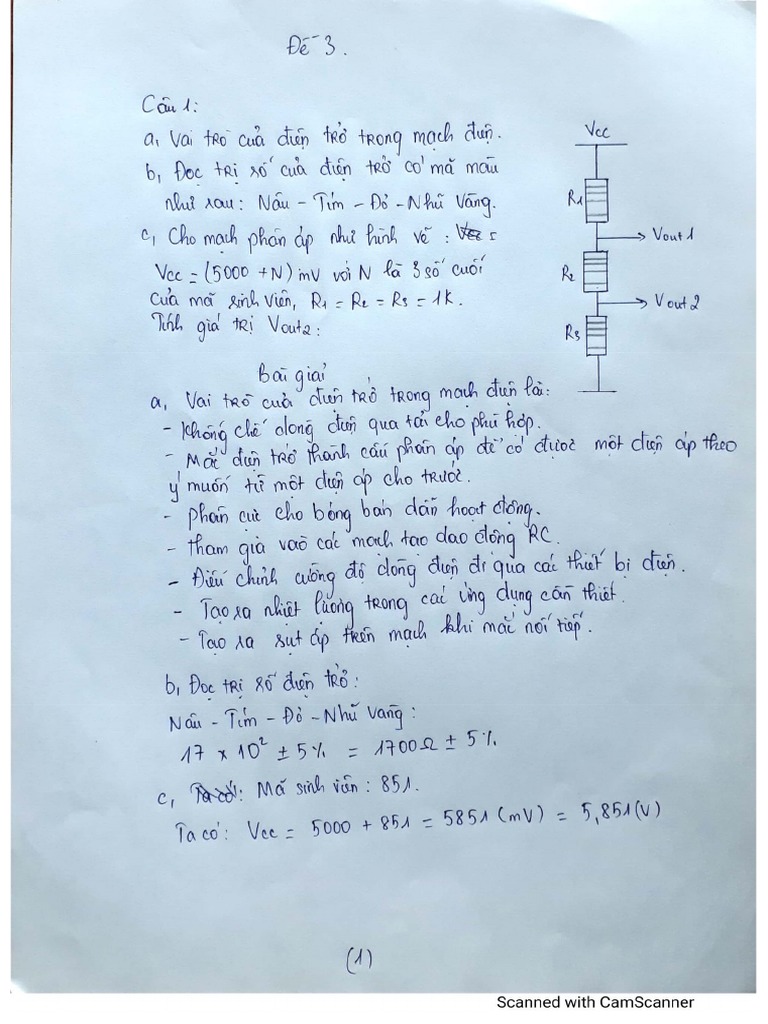 Đề 3.
Câu 1:
a, Vai trò của điện trở trong mạch điện.
b, Đọc trị số của điện trở có mã màu
như sau: Nâu - Tím - Đỏ - Nhũ Vàng.
c, Cho mạch phân áp như hình vẽ :
Vcc = (5000 + N) mV với N là 3 số cuối
của mã sinh viên, R1 = R2 = R3 = 1K.
Tính giá trị Vout2:
Vcc
R1
Vout 1
R2
Vout 2
R3
Bài giải
a, Vai trò của điện trở trong mạch điện là:
- Khống chế dòng điện qua tải cho phù hợp.
- Mắc điện trở thành cầu phân áp để có được một điện áp theo
ý muốn từ một điện áp cho trước.
- phân cực cho bóng bán dẫn hoạt động.
- tham gia vào các mạch tạo dao động RC.
- Điều chỉnh cường độ dòng điện đi qua các thiết bị điện.
- Tạo ra nhiệt lượng trong các ứng dụng cần thiết.
- Tạo ra sụt áp trên mạch khi mắc nối tiếp.
b, Đọc trị số điện trở:
Nâu - Tím - Đỏ - Nhũ Vàng:
17 x 10² ± 5% = 1700Ω ± 5%
c, Mã sinh viên: 851.
Ta có: Vcc = 5000 + 851 = 5851 (mV) = 5,851(V)
(1)
Scanned with CamScanner